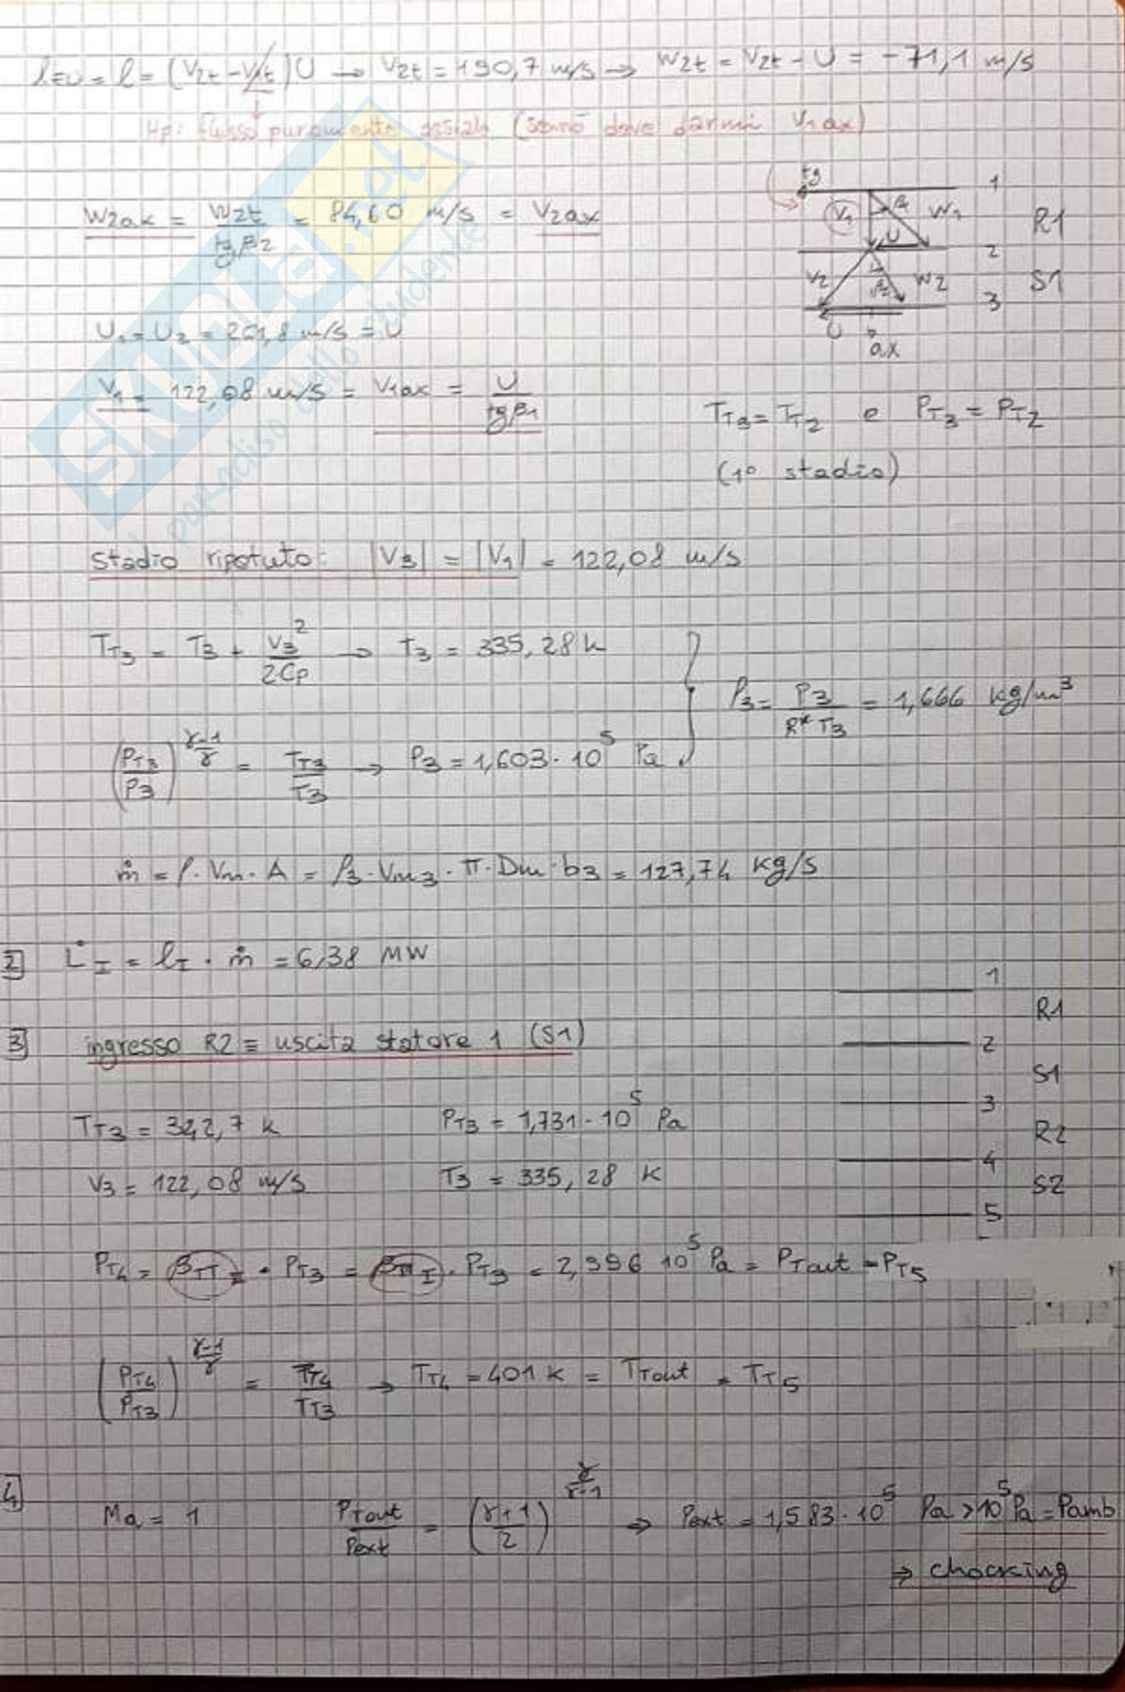 l_EU = l = (V2t - V1t) U → V2t = 190,7 m/s → W2t = V2t - U = -71,1 m/s
Hp: flusso puramente assiale (sennò deve darmi V1ax)
W2ax = W2t / tg β2 = 84,60 m/s = V2ax
U1 = U2 = 261,8 m/s = U
V1 = 122,08 m/s = V1ax = U / tg β1
tg 1
V1 β1 W1 R1
U 2
V2 β2 W2 S1
3
U ax
TT3 = TT2 e PT3 = PT2
(1° stadio)
SKUOLA.net
paradiso dello studente
Stadio ripetuto: |V3| = |V1| = 122,08 m/s
TT3 = T3 + V3² / 2Cp → T3 = 335,28 K
(PT3 / P3)^(γ-1 / γ) = TT3 / T3 → P3 = 1,603 · 10⁵ Pa
ρ3 = P3 / R* T3 = 1,666 kg/m³
ṁ = ρ · Vm · A = ρ3 · Vm3 · π · Dm · b3 = 127,74 kg/s
2 L̇I = lI · ṁ = 6,38 MW
3 ingresso R2 ≡ uscita statore 1 (S1)
1
R1
2
S1
3
R2
4
S2
5
TT3 = 342,7 K PT3 = 1,731 · 10⁵ Pa
V3 = 122,08 m/s T3 = 335,28 K
PT4 = βTT II · PT3 = βTT I · PT3 = 2,996 10⁵ Pa = PTout = PT5
(PT4 / PT3)^(γ-1 / γ) = TT4 / TT3 → TT4 = 401 K = TTout = TT5
4 Ma = 1 PTout / Pext = (γ+1 / 2)^(γ / γ-1) ⇒ Pext = 1,583 · 10⁵ Pa > 10⁵ Pa = Pamb
⇒ chocking